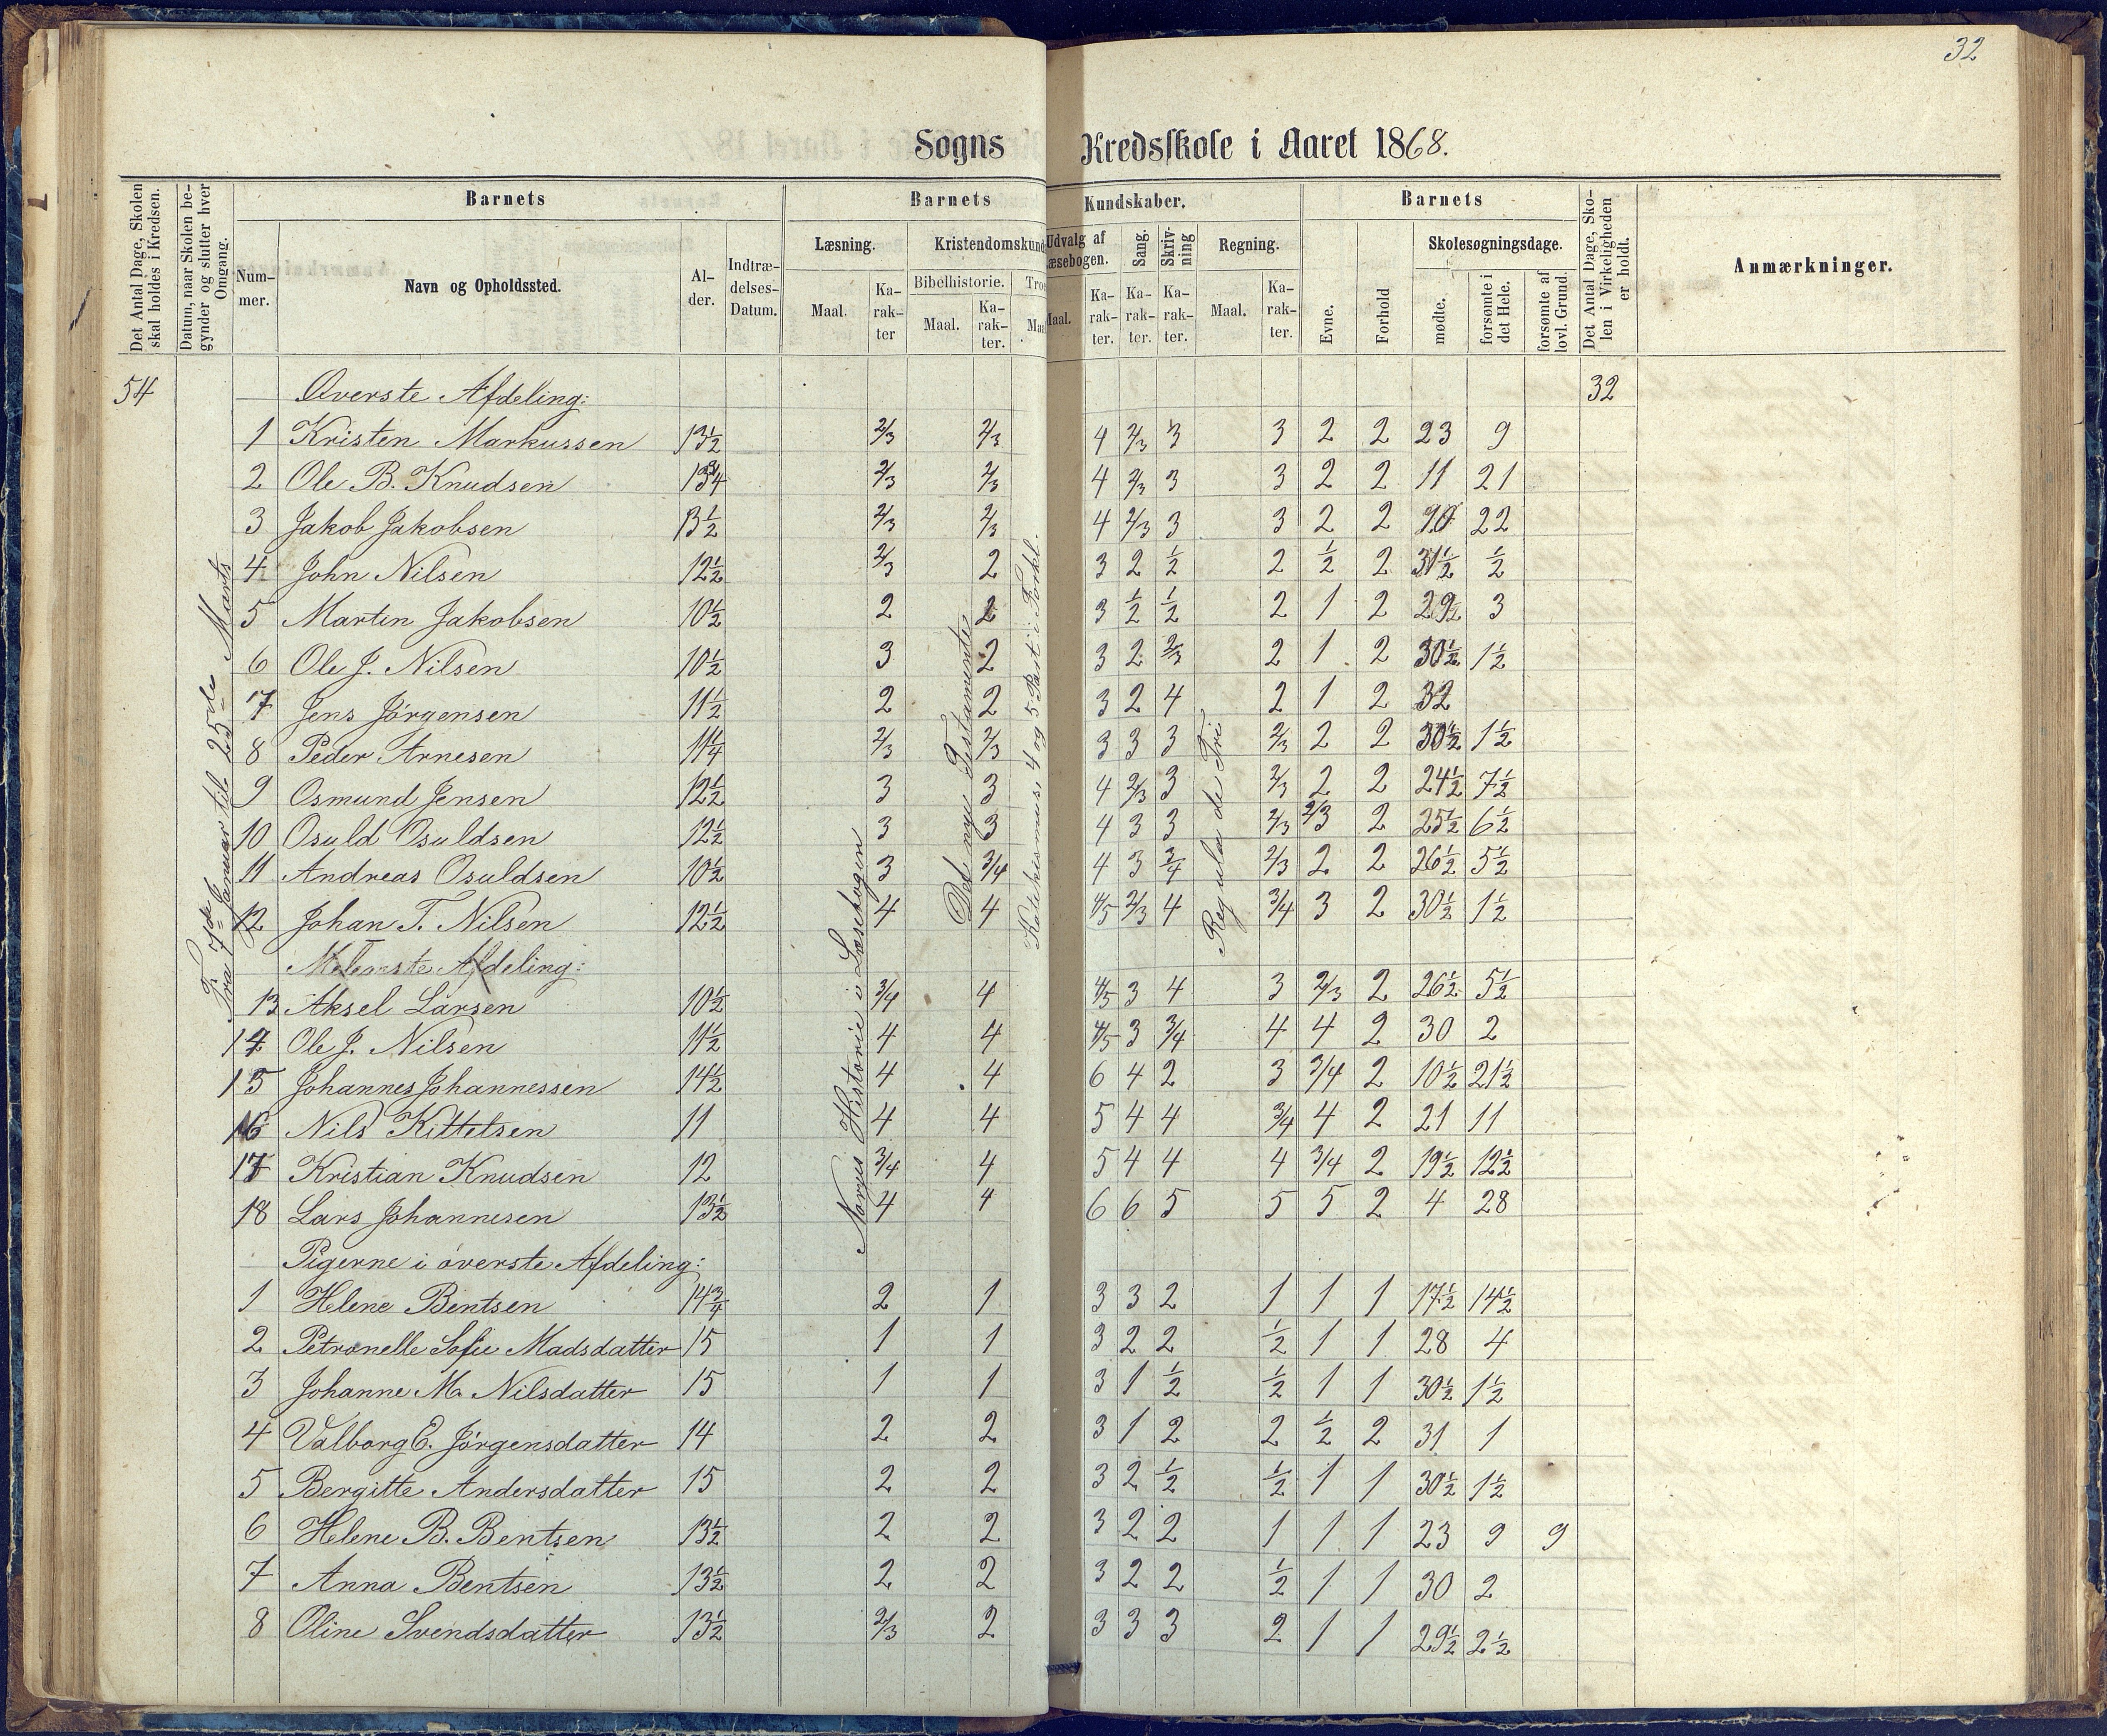 32
Sogns Kredsskole i Aaret 1868.
Det Antal Dage, Skolen skal holdes i Kredsen.
Datum, naar Skolen begynder og slutter hver Omgang.
Barnets
Nummer.
Navn og Opholdssted.
Alder.
Indtrædelses-Datum.
Barnets Kundskaber.
Læsning.
Maal.
Karakter
Kristendomskund
Bibelhistorie.
Maal.
Karakter.
Troe
Maa
Udvalg af
æsebogen.
Maal.
Karakter.
Sang.
Karakter.
Skrivning
Karakter.
Regning.
Maal.
Karakter.
Barnets
Evne.
Forhold
Skolesøgningsdage.
mødte.
forsømte i det Hele.
forsømte af lovl. Grund.
Det Antal Dage, Skolen i Virkeligheden er holdt.
Anmærkninger.
54 Øverste Afdeling: 32
Fra 7de Januar til 25de Marts
Norges Historie i Læsebogen
Det nye Testamente
Katekismus, 4 og 5 Part i Forkl.
Regula de Tri
1 Kristen Markussen 13½ 2/3 2/3 4 2/3 3 3 2 2 23 9
2 Ole B. Knudsen 13¾ 2/3 2/3 4 2/3 3 3 2 2 11 21
3 Jakob Jakobsen 13½ 2/3 2/3 4 2/3 3 3 2 2 10 22
4 John Nilsen 12½ 2/3 2 3 2 ½ 2 ½ 2 31½ ½
5 Martin Jakobsen 10½ 2 2 3 ½ ½ 2 1 2 29 3
6 Ole J. Nilsen 10½ 3 2 3 2 2/3 2 1 2 30½ 1½
7 Jens Jörgensen 11½ 2 2 3 2 4 2 1 2 32
8 Peder Arnesen 11¼ 2/3 2/3 3 3 3 2/3 2 2 30½ 1½
9 Osmund Jensen 12½ 3 3 4 2/3 3 2/3 2 2 24½ 7½
10 Osuld Osuldsen 12½ 3 3 4 3 3 2/3 2/3 2 25½ 6½
11 Andreas Osuldsen 10½ 3 3/4 4 3 3/4 2/3 2 2 26½ 5½
12 Johan T. Nilsen 12½ 4 4 4/5 2/3 4 3/4 3 2 30½ 1½
Melemste Afdeling:
13 Aksel Larsen 10½ 3/4 4 4/5 3 4 3 2/3 2 26½ 5½
14 Ole J. Nilsen 11½ 4 4 4/5 3 3/4 4 4 2 30 2
15 Johannes Johannessen 14½ 4 4 6 4 2 3 3/4 2 10½ 21½
16 Nils Kittelsen 11 4 4 5 4 4 3/4 4 2 21 11
17 Kristian Knudsen 12 3/4 4 5 4 4 4 3/4 2 19½ 12½
18 Lars Johannesen 13½ 4 4 6 6 5 5 5 2 4 28
Pigerne i överste Afdeling:
1 Helene Bentsen 14¾ 2 1 3 3 2 1 1 1 17½ 14½
2 Petronelle Sofie Madsdatter 15 1 1 3 2 2 ½ 1 1 28 4
3 Johanne M. Nilsdatter 15 1 1 3 1 ½ ½ 1 1 30½ 1½
4 Valborg E. Jörgensdatter 14 2 2 3 1 2 2 ½ 2 31 1
5 Bergitte Andersdatter 15 2 2 3 2 ½ ½ 1 1 30½ 1½
6 Helene B. Bentsen 13½ 2 2 3 2 2 1 1 1 23 9 9
7 Anna Bentsen 13½ 2 2 3 2 2 ½ 1 1 30 2
8 Oline Svendsdatter 13½ 2/3 2 3 3 3 2 1 1 29½ 2½